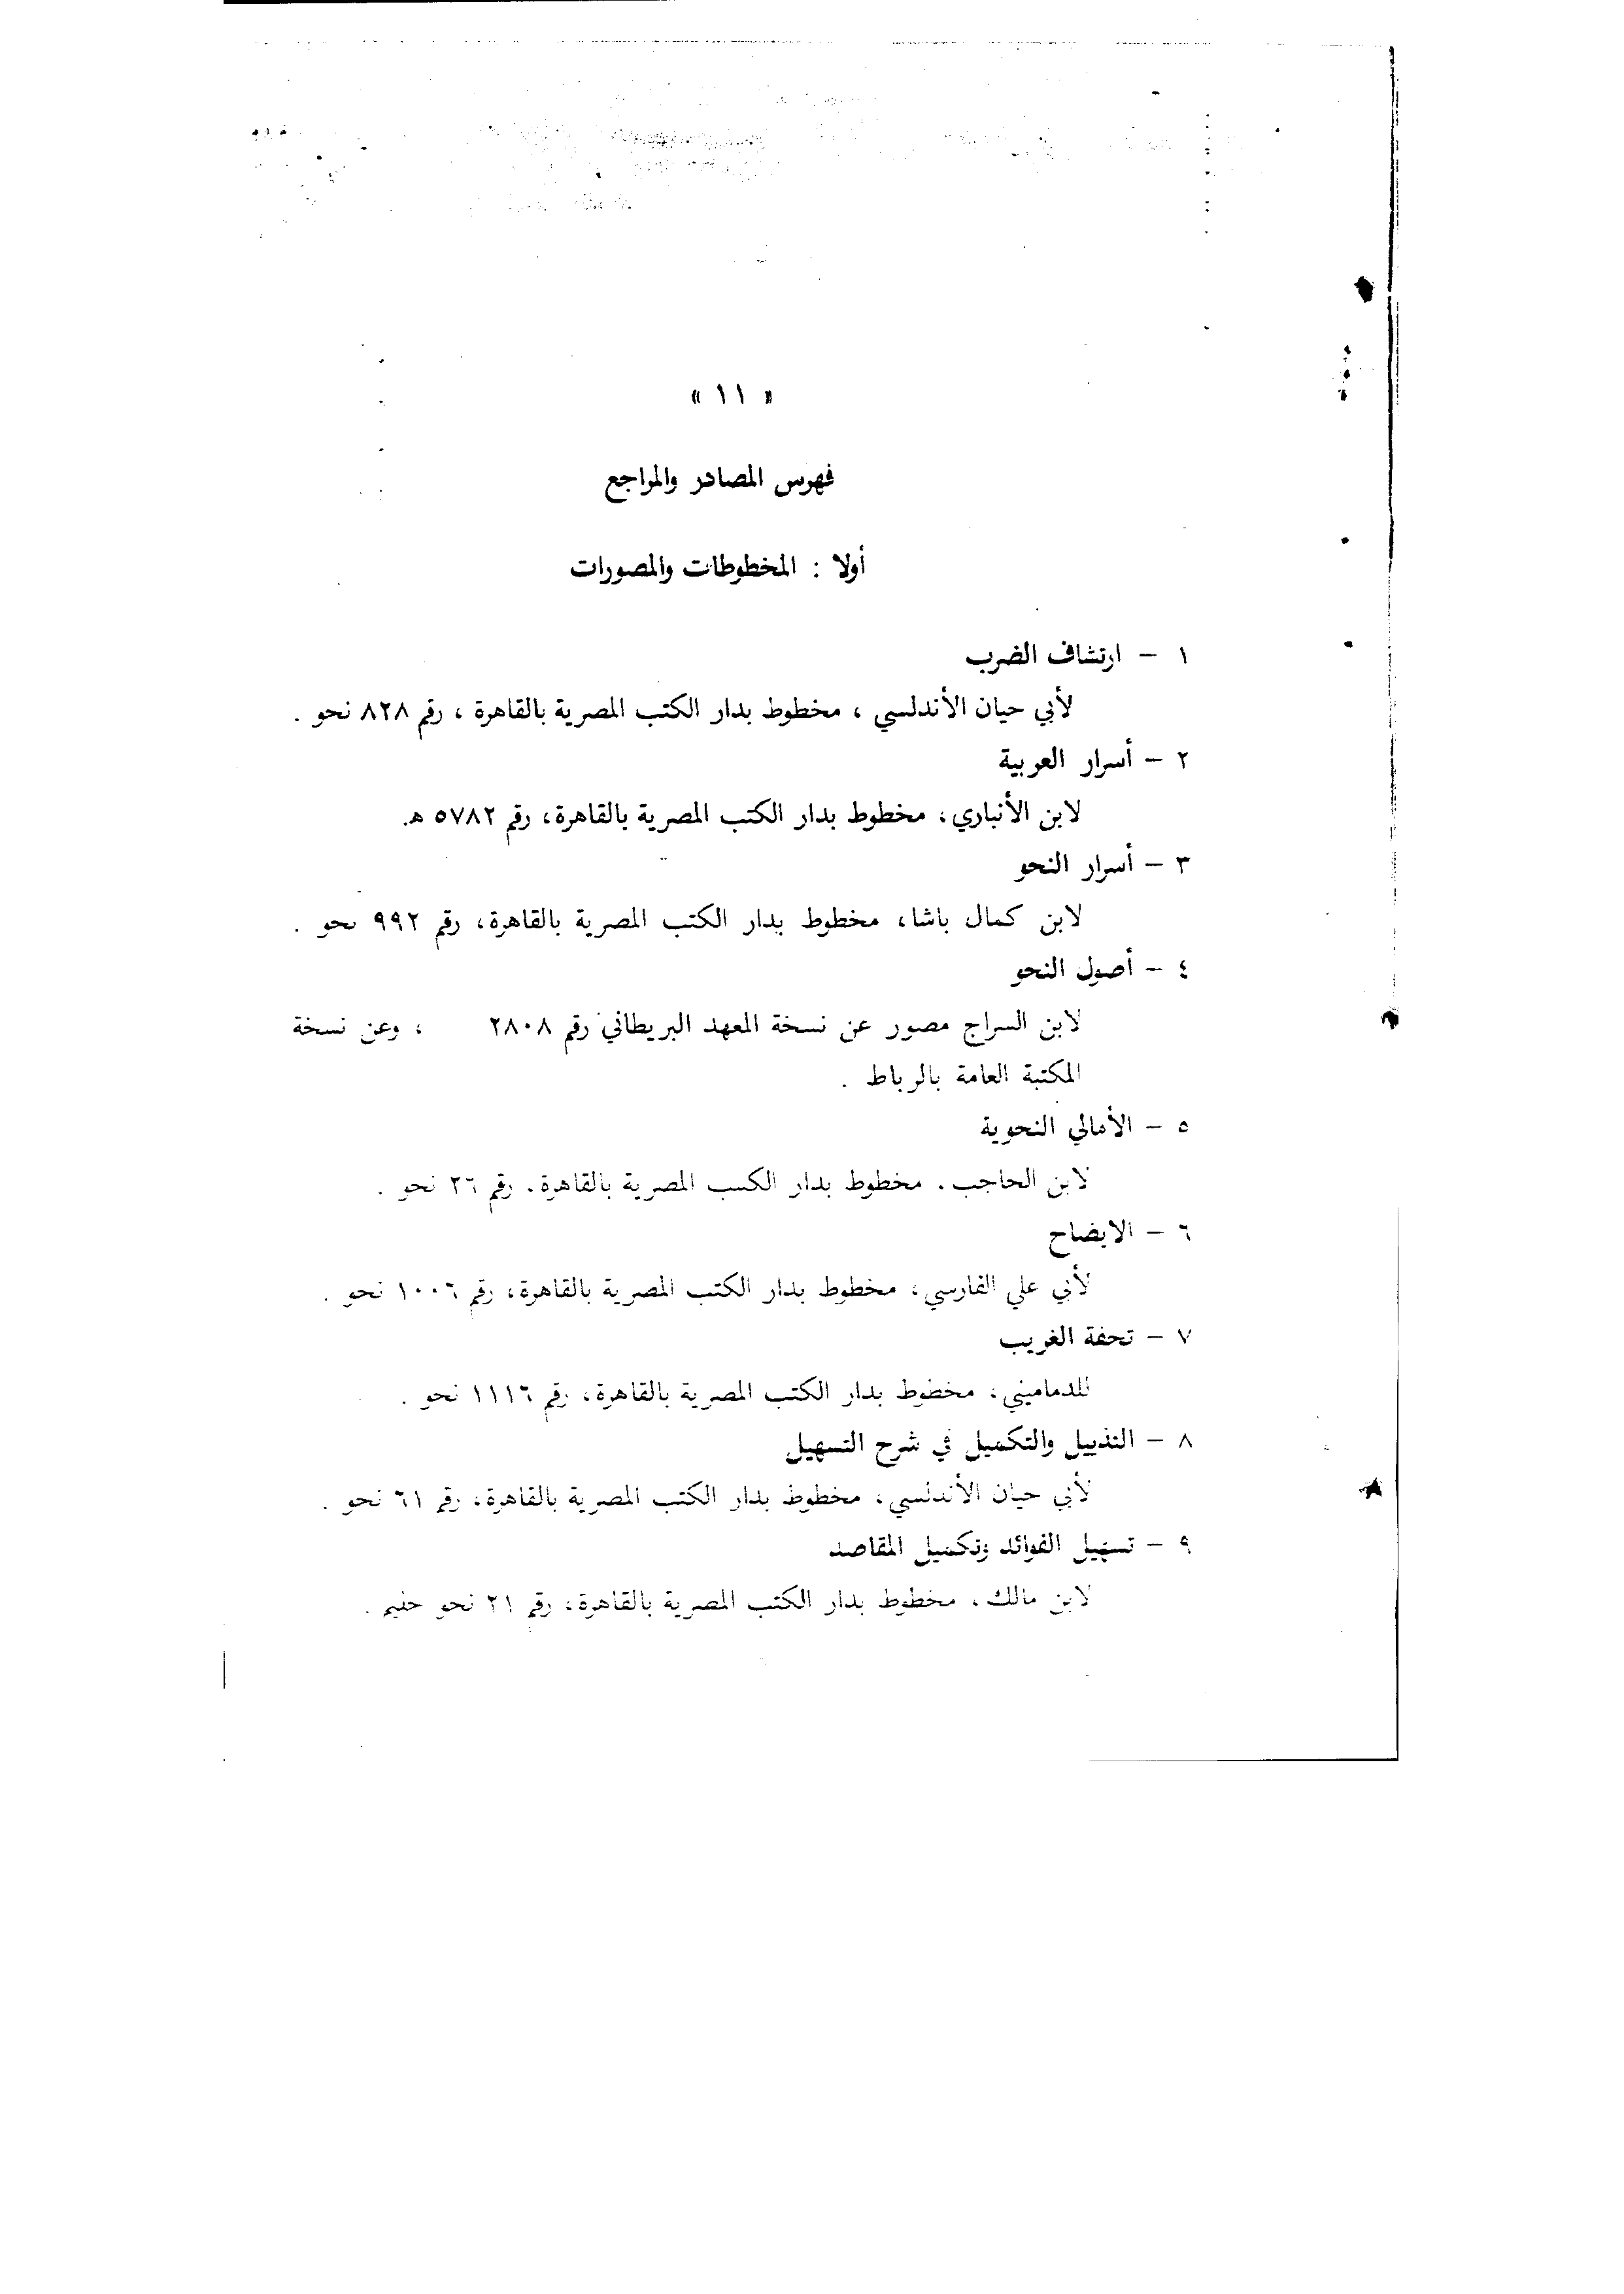 « ١١ »
فهرس المصادر والمراجع
أولا : المخطوطات والمصورات
١ – ارتشاف الضرب
لأبي حيان الأندلسي ، مخطوط بدار الكتب المصرية بالقاهرة ، رقم ٨٢٨ نحو .
٢ – أسرار العربية
لابن الأنباري، مخطوط بدار الكتب المصرية بالقاهرة، رقم ٥٧٨٢ هـ.
٣ – أسرار النحو
لابن كمال باشا، مخطوط بدار الكتب المصرية بالقاهرة، رقم ٩٩٢ نحو .
٤ – أصول النحو
لابن السراج مصور عن نسخة المعهد البريطاني رقم ٢٨٠٨ ، وعن نسخة
المكتبة العامة بالرباط .
٥ – الأمالي النحوية
لابن الحاجب. مخطوط بدار الكتب المصرية بالقاهرة. رقم ٢٦ نحو .
٦ – الايضاح
لأبي علي الفارسي، مخطوط بدار الكتب المصرية بالقاهرة، رقم ١٠٠٦ نحو .
٧ – تحفة الغريب
للدماميني، مخطوط بدار الكتب المصرية بالقاهرة، رقم ١١١٦ نحو .
٨ – التذييل والتكميل في شرح التسهيل
لأبي حيان الأندلسي، مخطوط بدار الكتب المصرية بالقاهرة، رقم ٦١ نحو .
٩ – تسهيل الفوائد وتكميل المقاصد
لابن مالك، مخطوط بدار الكتب المصرية بالقاهرة، رقم ٢١ نحو حليم .